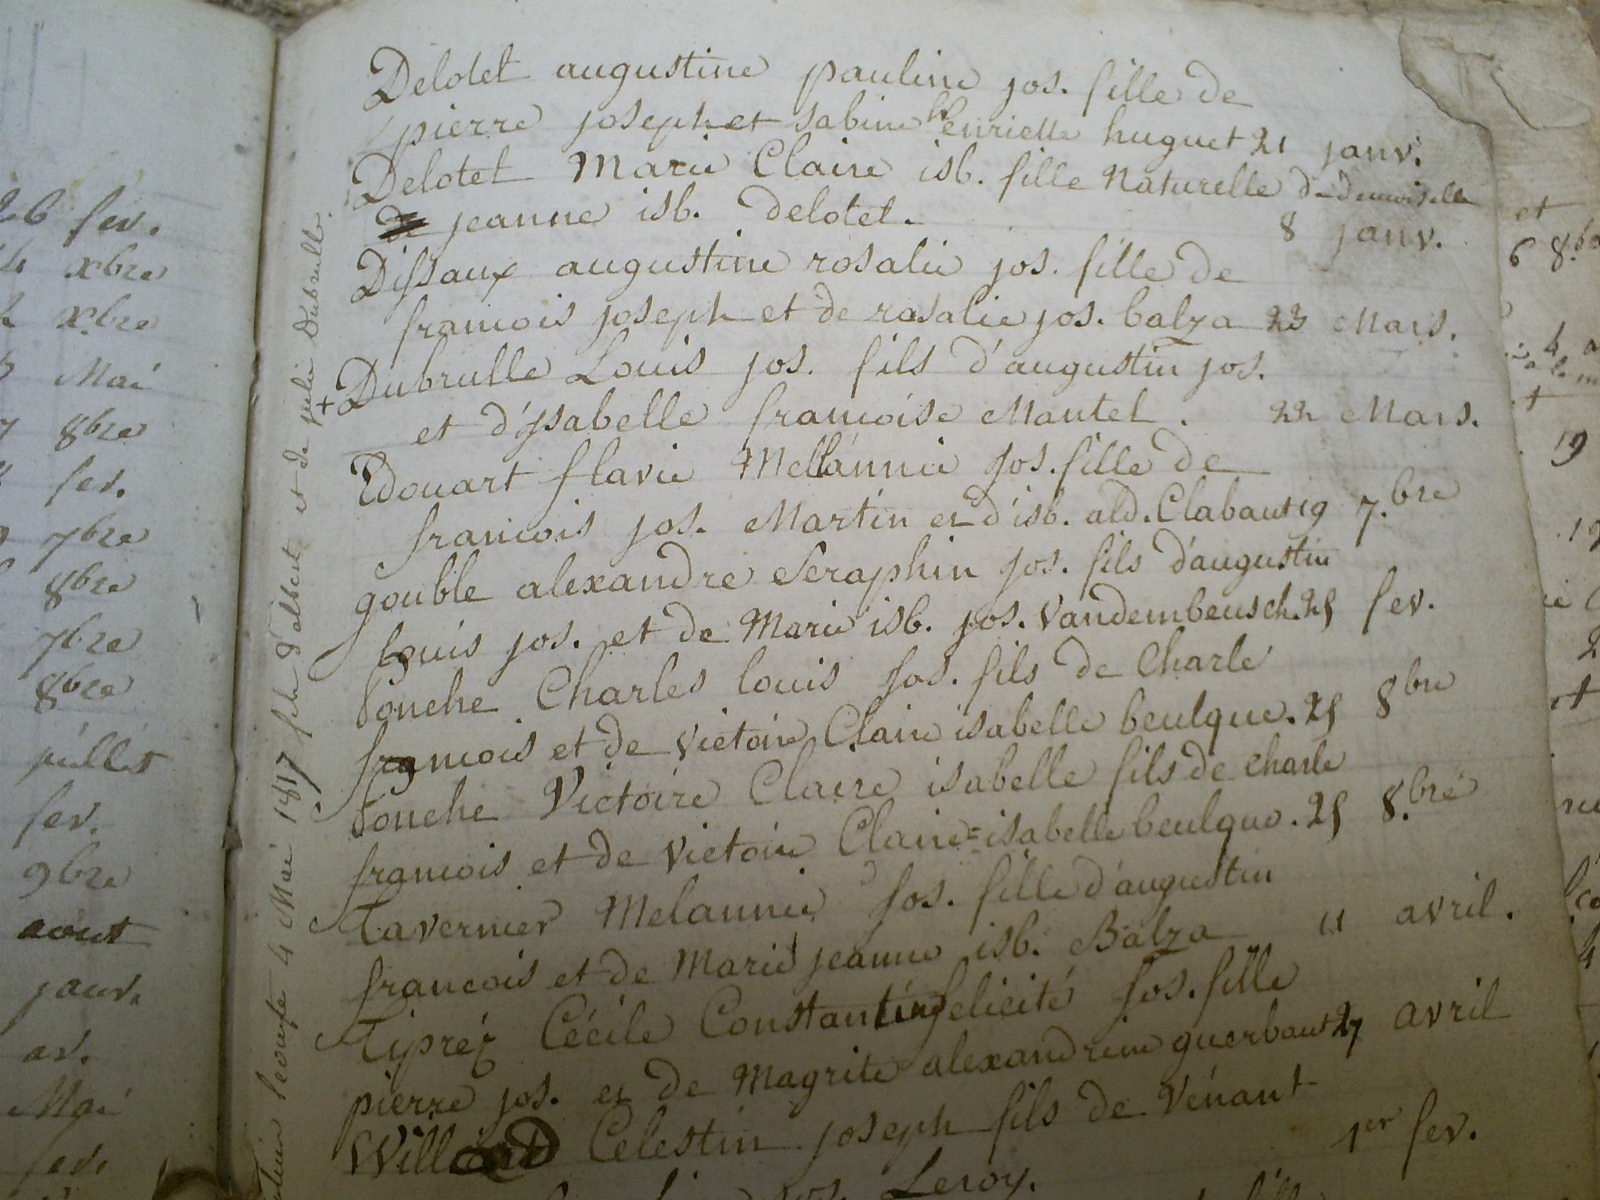 26 fev.
xbre
xbre
Mai
8bre
fev.
7bre
8bre
7bre
8bre
juillet
fev.
9bre
aout
janv.
av.
Mai
fev.
4 Mai 1817 fils d'albert et de julie Dubrulle.
Delotet augustine pauline jos. fille de
pierre joseph et sabine henriette huguet 21 janv.
Delotet Marie Claire isb. fille Naturelle de demoiselle
jeanne isb. delotet. 8 janv.
Dissaux augustine rosalie jos. fille de
francois joseph et de rosalie jos. balza 23 Mars.
+ Dubrulle Louis jos. fils d'augustin jos.
et d'ysabelle francoise Mantel. 22 Mars.
Edouart flavie Mellannie jos. fille de
francois jos. Martin et d'isb. ald. Clabaut 19 7.bre
gouble alexandre Seraphin jos. fils d'augustin
louis jos. et de Marie isb. jos. Vandembeusch. 25 fev.
Charles louis jos. fils de Charle
francois et de Victoire Claire isabelle beulque. 25 8bre
Victoire Claire isabelle fils de charle
francois et de Victoire Claire=isabelle beulque. 25 8.bre
Tavernier Melannie jos. fille d'augustin
francois et de Marie jeanne isb. Balza 11 avril.
Tiprez Cécile Constantine felicité jos. fille
pierre jos. et de Magrite alexandrine guerbaut 27 avril
Celestin joseph fils de Vénant
1er fev.
jos. Leroy.
et
6 8b
19